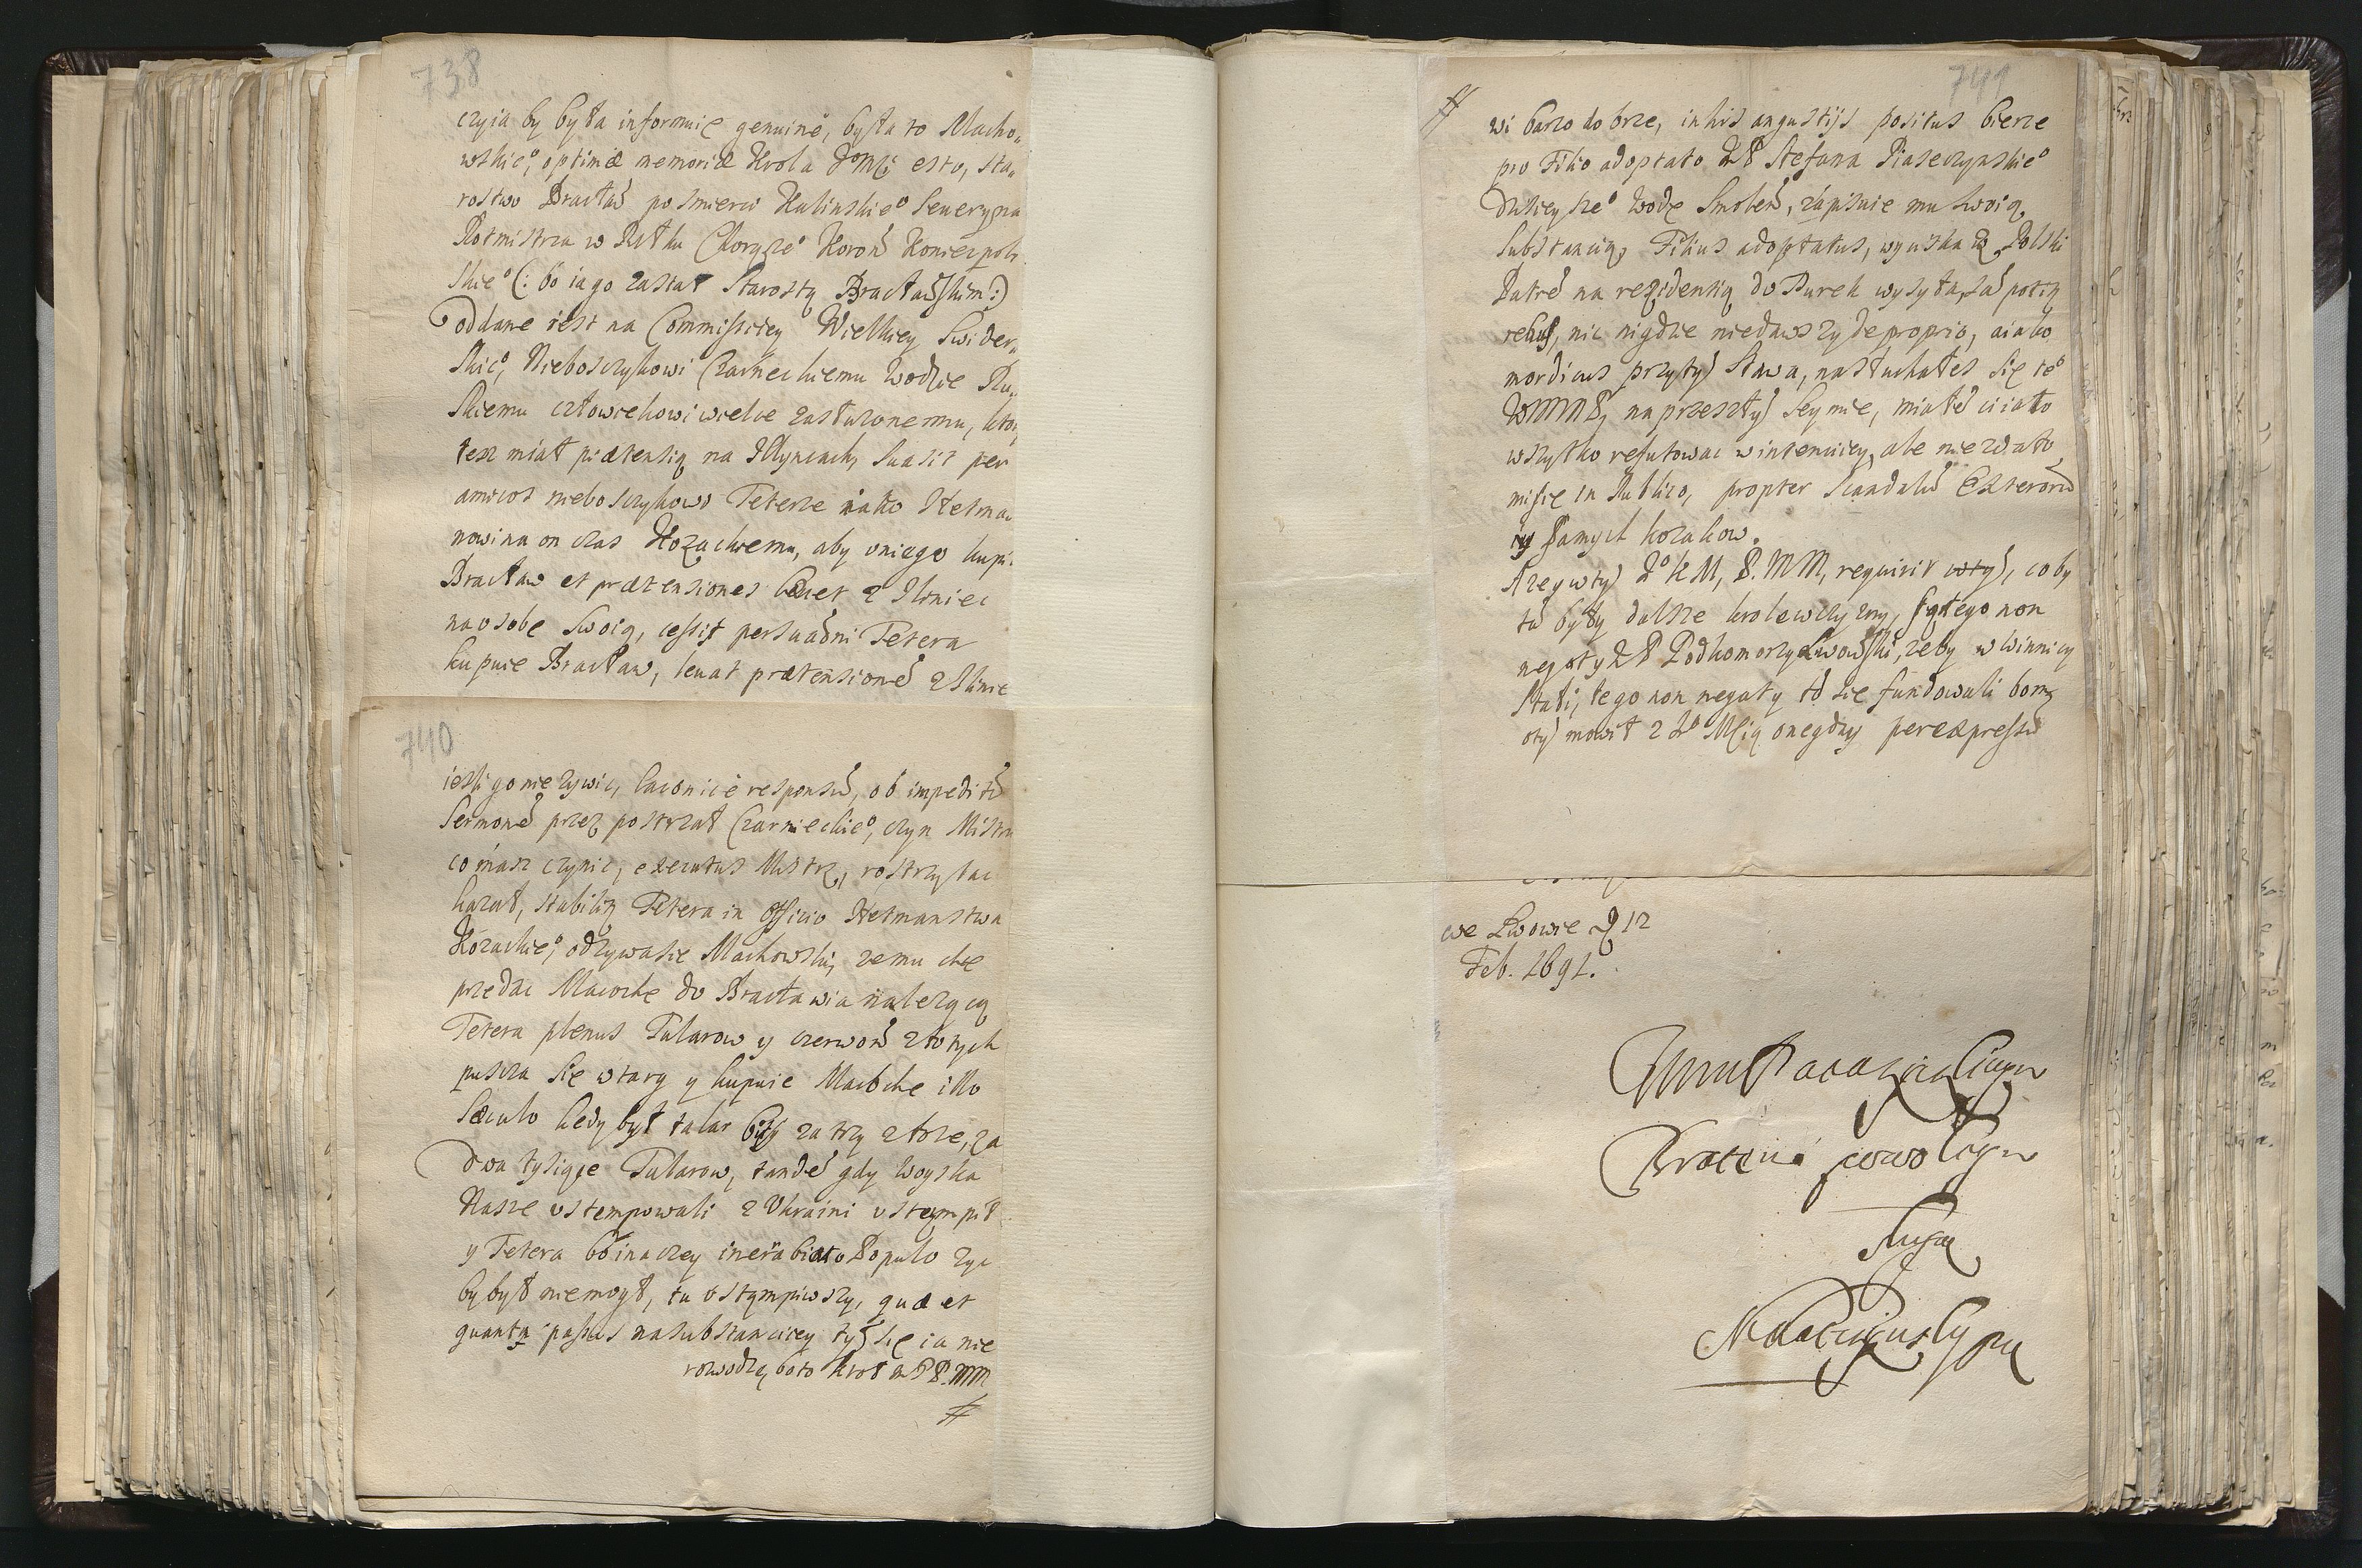 738
czyia by była informuię genuinè, była to Macho„
wskie°, optimæ memoriæ Krola JmCi esto, sta„
rostwo Bracław po smierci Kalinskie° Seweryna
Rotmistrza w Pułku Chorąze° Koron Koniecpol
skie° (: bo ia go zastał Starostą Bracławskim :)
oddane iest na Commissiey Wielkiey Swider„
skie°, Nieboszczykowi Czarneckiemu Wodzie Ru„
skiemu człowiekowi wielce zasłuzonemu, kto
tesz miał prætensią na Ilyncach, suasit per
amicos nieboszczykowi Teterze iako Hetma
nowi na on czas Kozackiemu, aby u niego kupi
Bracław et prætensiones z Iliniec
na osobe swoią, cessit persuasni Tetera
kupuie Bracław, leuat prætensione z Ilinie
740
iesli go nie zywic, laconicè responsu, ob impeditu
sermone przez postrzał Czarnieckie°, czyn Mistru
co masz czynic, executus Mistrz, rostrzylac
kazał, stabilis Tetera in officio Hetmanstwa
Kozackie°, odzywasie Machowski, ze mu chce
przedac Macoche do Bracławia nalezącą
Tetera plenus Talarow y czerwon złotych
puscza się w targ y kupuie Macoche illo
sæculo kedy był talar bity za trzy złote, za
dwa tysiące Talarow, tande gdy Woyska
Nasze ustempowali z Ukraini ustąmpił
y Tetera bo inaczey in erabiato Populo zyc
by był niemogł, tu ustąmpiwszy, quæ et
quanta passus na substanciey tyskę ia nie
rozwodzę, bo to Krol P. MM
#
741
# wi barzo dobrze, in his angustijs positus bierze
pro Filio adoptato JP Stefana Piaseczynskie°
dzisieysze° Wodę Smolen, zapisuie mu swoią
substancią, Filius adoptatus, wyciska z Polski
Patre na rezidentią do Turek wysyła, sa potiz
rebus, nic nigdzie niedawszy de proprio, a iako
mordicus przy ty stawa, nasłuchałes się te°
WMMP, na przeszły Seymie, miałe ci ia to
wszytko refutowac w intenciey, ale nie zdało
misie in Publico, propter scandalu Exteroru
y samych kozakow.
A zey w ty J° K M, P. MM, requirit, coby
tu były dalsze krolewczyzny, iz tego non
negoty JP Podkomorzy Lwowski, zeby w Winnicy
stati, tego non negoty tu sie fundowali bom
o ty mowił z J° MCią onegday per expressu
we Lwowie D 12
Feb. 1691.
Bratem powolnym
Sługą